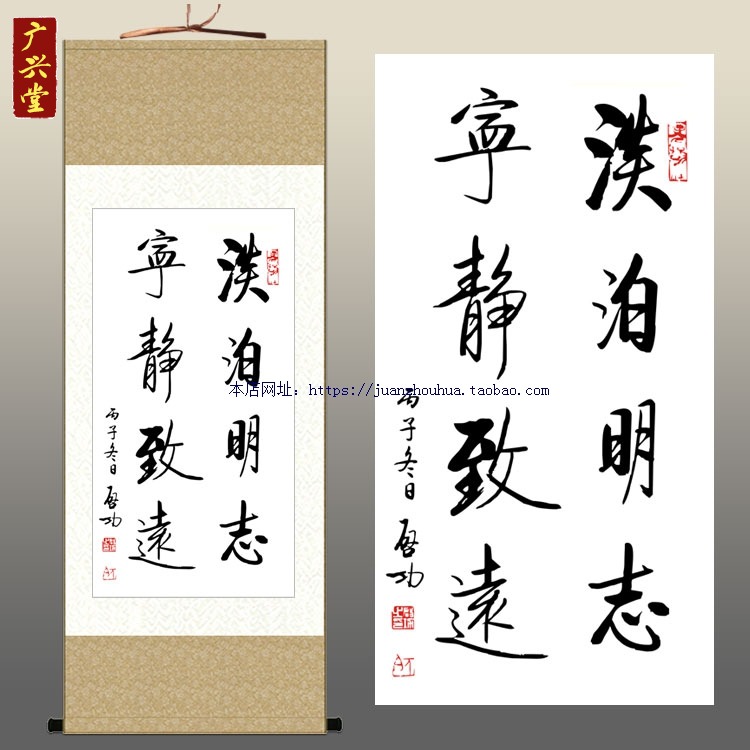 广兴堂
淡泊明志
寧静致遠
丙子冬日 啓功
淡泊明志
寧静致遠
丙子冬日 啓功
本店网址：https://juanzhouhua.taobao.com